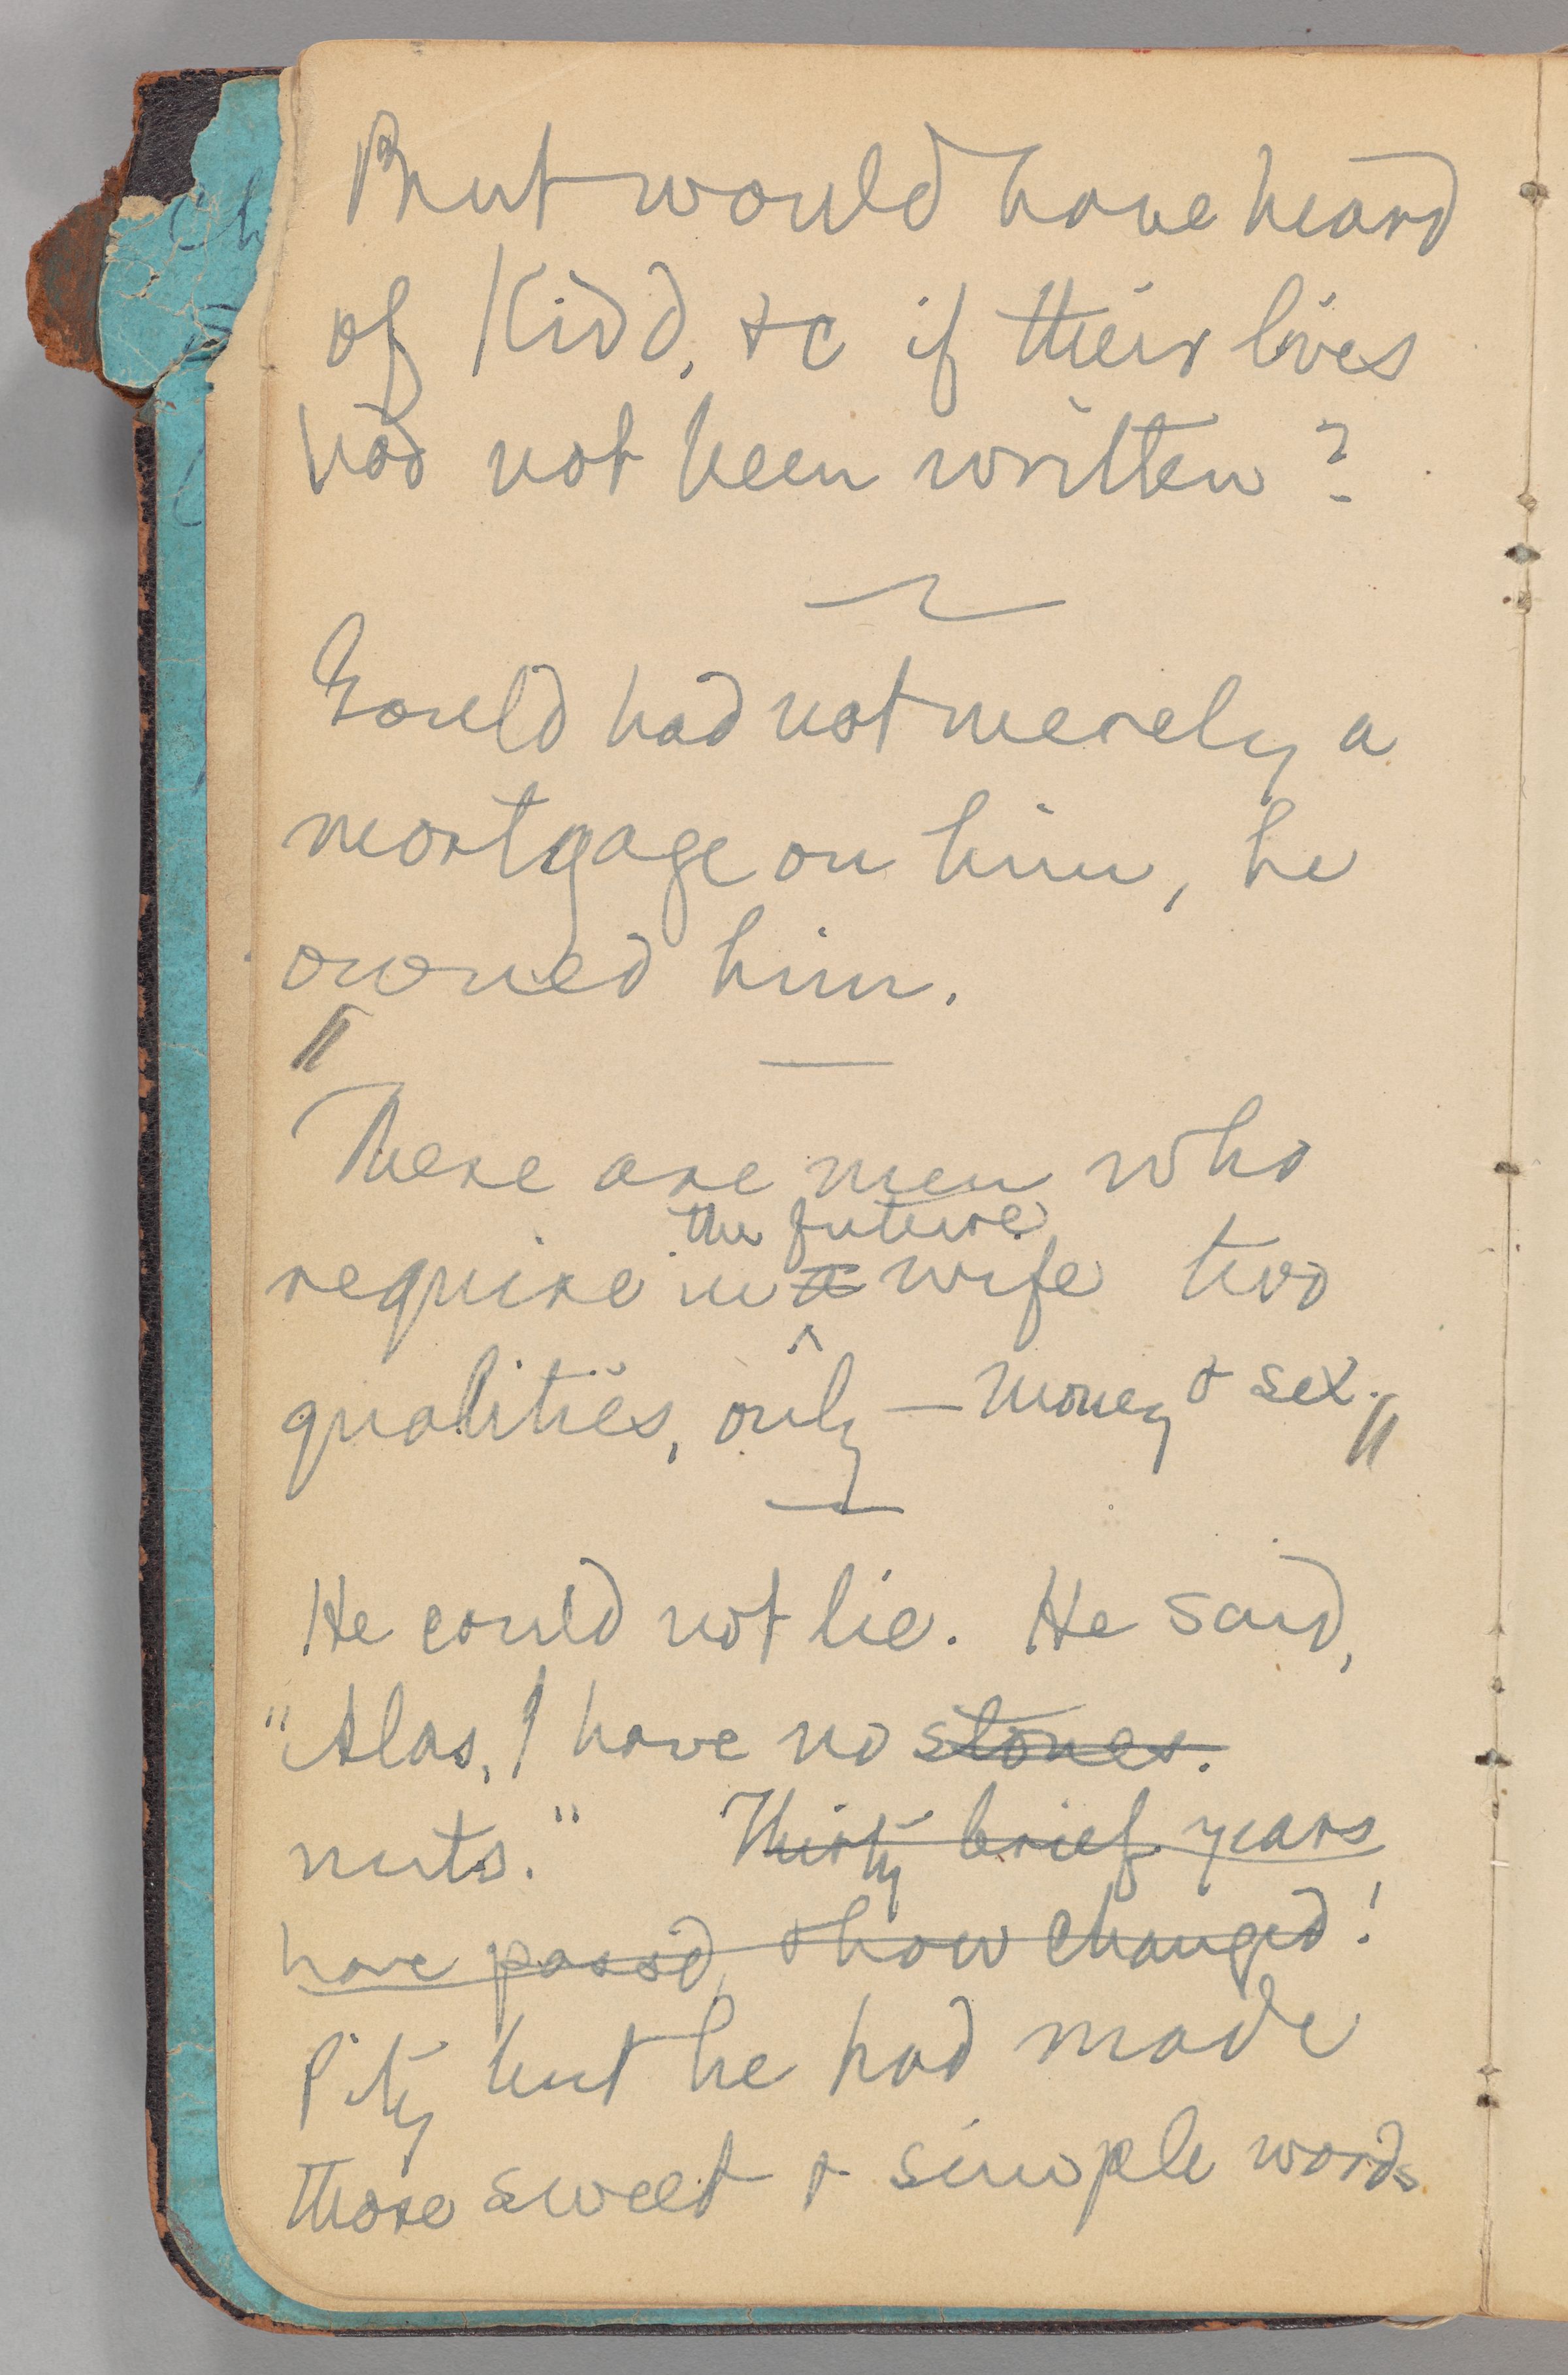 But would have heard
of Kidd, &c if their lives
had not been written?
Gould had not merely a
mortgage on him, he
owned him.
There are men who
the future
require in a wife two
qualities, only — money & sex.
He could not lie. He said,
"Alas, I have no stones.
nuts." Thirty brief years
have pass'd, & how changed!
Pity but he had made
those sweet & simple words